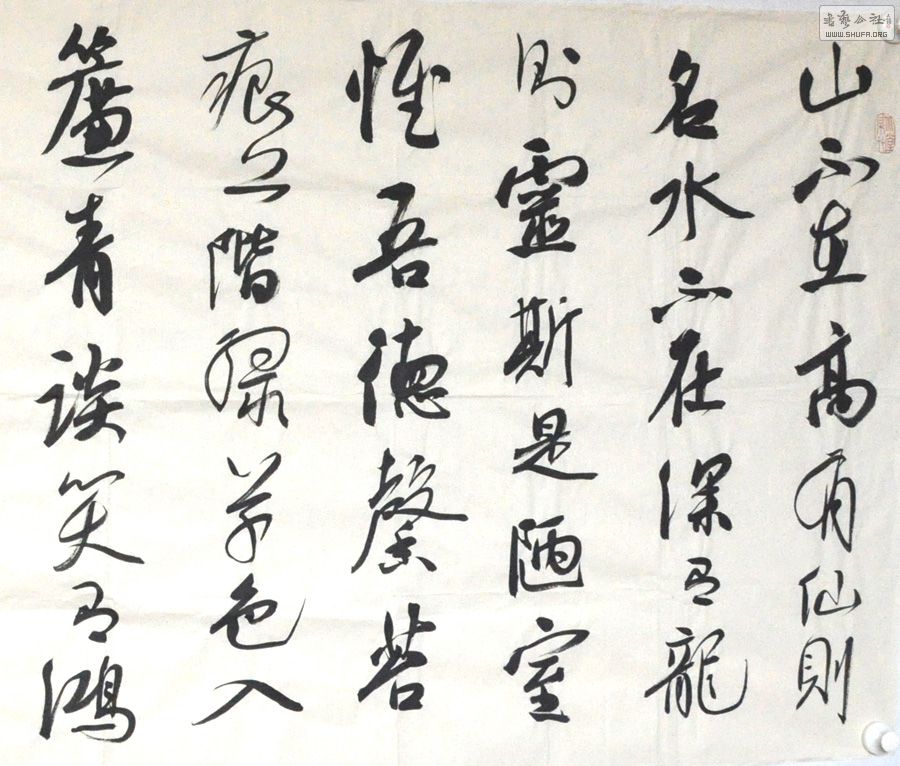 山不在高有仙則
名水不在深有龍
則靈斯是陋室
惟吾德馨苔
痕上階綠草色入
簾青談笑有鴻
書藝公社
WWW.SHUFA.ORG